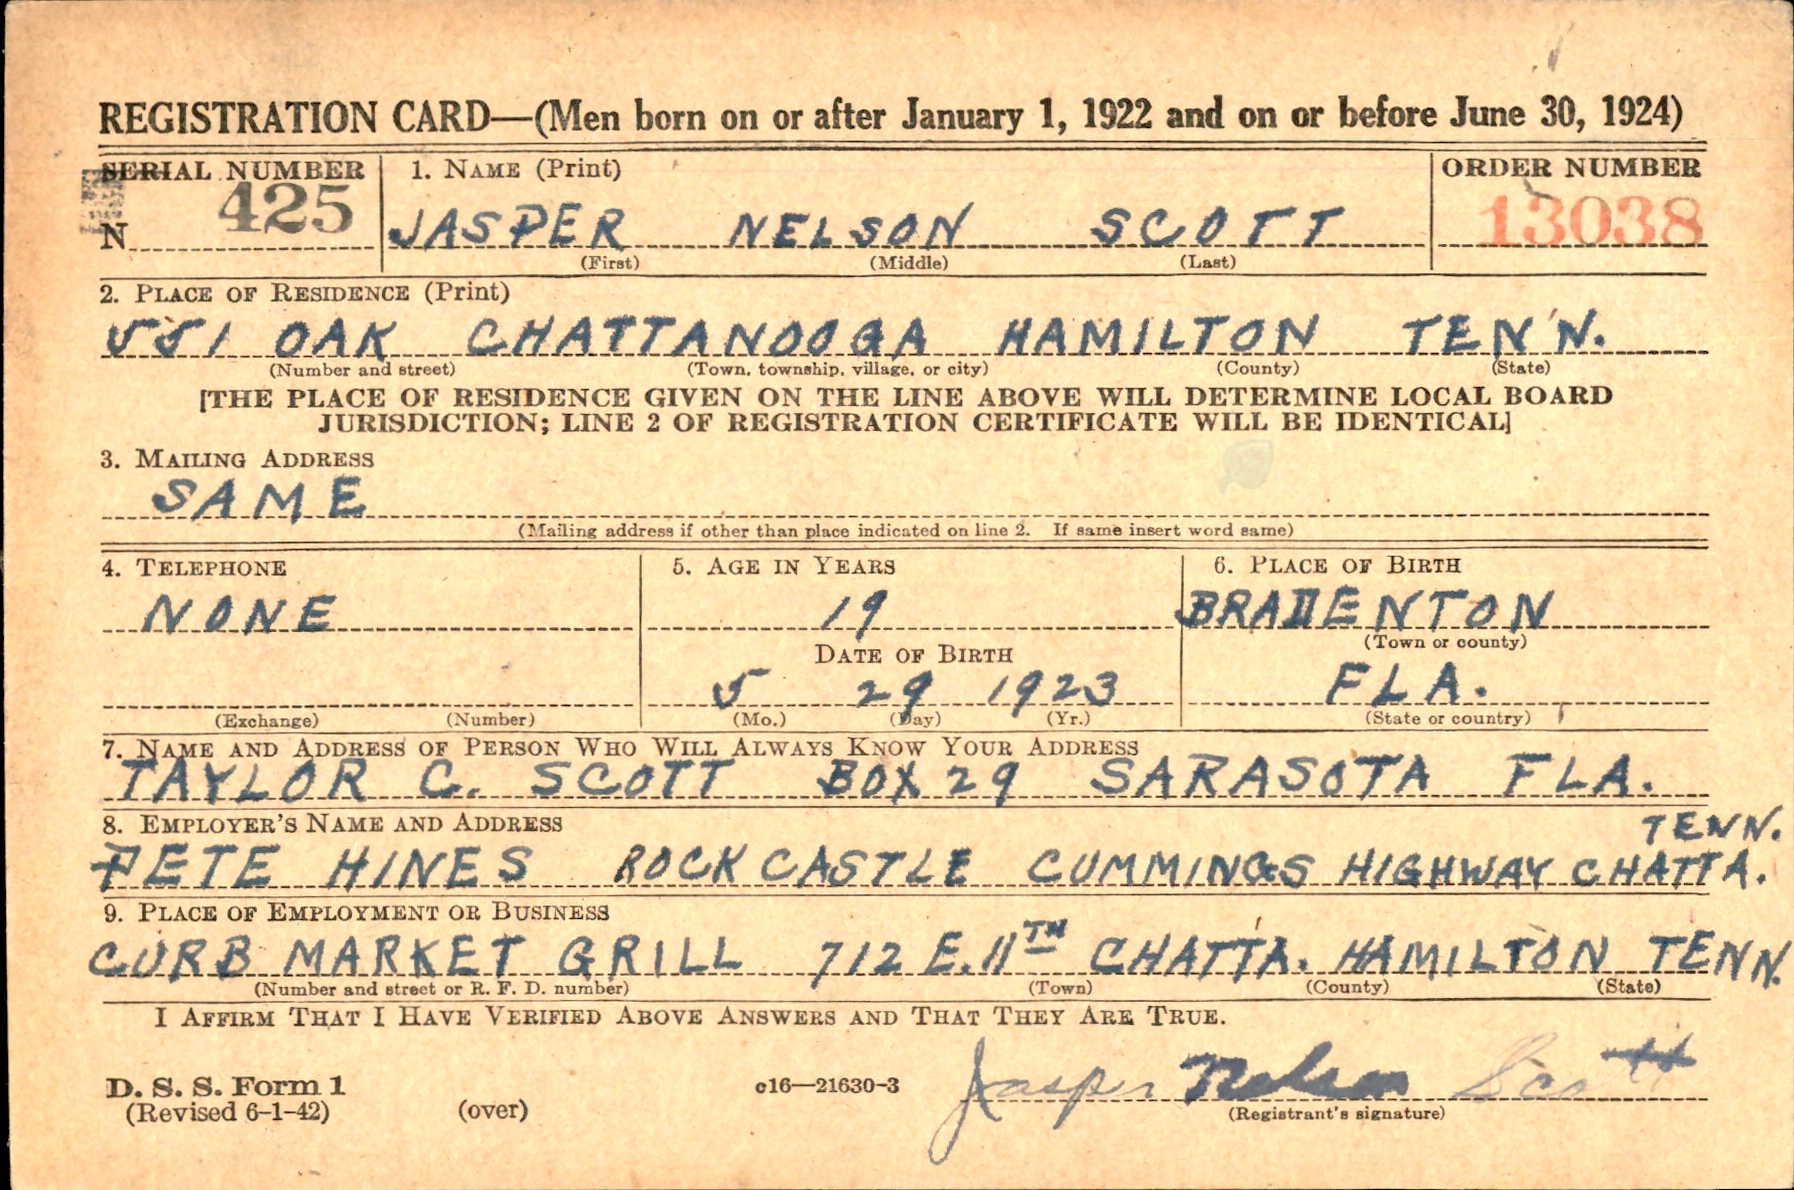 REGISTRATION CARD—(Men born on or after January 1, 1922 and on or before June 30, 1924)
SERIAL NUMBER
1. NAME (Print)
ORDER NUMBER
N 425
JASPER NELSON SCOTT
13038
(First) (Middle) (Last)
2. PLACE OF RESIDENCE (Print)
551 OAK CHATTANOOGA HAMILTON TENN.
(Number and street) (Town, township, village, or city) (County) (State)
[THE PLACE OF RESIDENCE GIVEN ON THE LINE ABOVE WILL DETERMINE LOCAL BOARD
JURISDICTION; LINE 2 OF REGISTRATION CERTIFICATE WILL BE IDENTICAL]
3. MAILING ADDRESS
SAME
(Mailing address if other than place indicated on line 2. If same insert word same)
4. TELEPHONE
5. AGE IN YEARS
6. PLACE OF BIRTH
NONE
19
BRADENTON
(Town or county)
DATE OF BIRTH
5 29 1923
FLA.
(Exchange) (Number)
(Mo.) (Day) (Yr.)
(State or country)
7. NAME AND ADDRESS OF PERSON WHO WILL ALWAYS KNOW YOUR ADDRESS
TAYLOR C. SCOTT BOX 29 SARASOTA FLA.
8. EMPLOYER'S NAME AND ADDRESS
TENN.
PETE HINES ROCK CASTLE CUMMINGS HIGHWAY CHATTA.
9. PLACE OF EMPLOYMENT OR BUSINESS
CURB MARKET GRILL 712 E. 11TH CHATTA. HAMILTON TENN.
(Number and street or R. F. D. number) (Town) (County) (State)
I AFFIRM THAT I HAVE VERIFIED ABOVE ANSWERS AND THAT THEY ARE TRUE.
D. S. S. Form 1
(Revised 6-1-42)
(over)
c16—21630-3
Jasper Nelson Scott
(Registrant's signature)